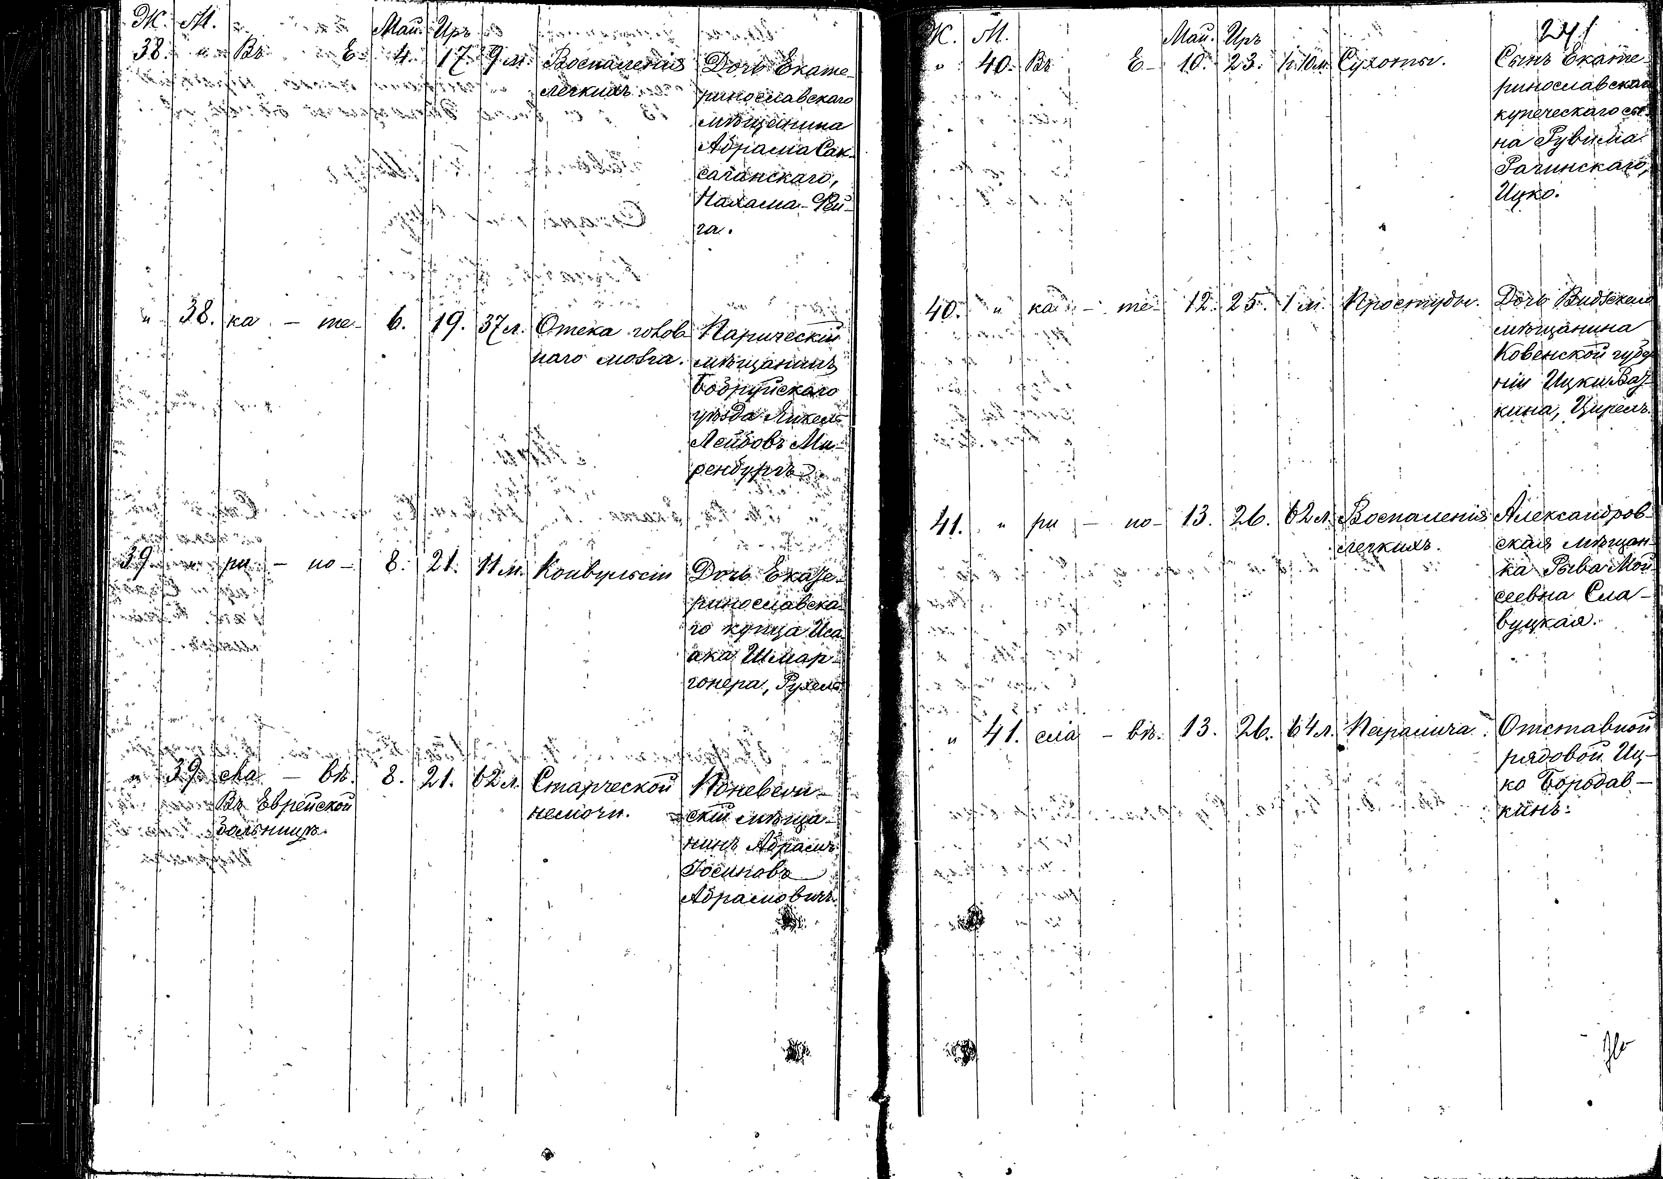 Ж. М. Май. Иръ
38. " Въ Е- 4. 17 9 м. Воспаленія Дочь Екате-
легкихъ ринославскаго
мѣщанина
Абрама Сак-
саганскаго,
Нахама-Ри-
га.
" 38. ка - те- 6. 19. 37 л. Отека голов- Паричскій
наго мозга. мѣщанинъ
Бобруйскаго
уѣзда Янкель
Лейбовъ Ми-
ренбургъ
39. " ри - но- 8. 21. 11 м. Конвульсіи Дочь Екате-
ринославска-
го купца Иса-
ака Шмар-
гонера, Рухель
" 39. сла - вѣ. 8. 21. 62 л. Старческой Поневеж-
Въ Еврейской немочи. скій мѣща-
больницѣ. нинъ Абрамъ
Іосиповъ
Абрамовичъ.
241
Ж. М. Май. Иръ
" 40. Въ Е- 10. 23. 1 г. 10 м. Сухоты. Сынъ Екате-
ринославскаго
купеческаго сы-
на Рувима
Рагинскаго,
Ицко.
40. " ка - те- 12. 25. 1 м. Простуды. Дочь Видзскаго
мѣщанина
Ковенской губер-
ніи Ицки
кина, Цирель.
41. " ри - но- 13. 26. 62 л. Воспаленія Александров-
легкихъ. ская мѣщан-
ка Рыва Мой-
сеевна Сла-
вуцкая.
" 41. сла - вѣ. 13. 26. 64 л. Паралича. Отставной
рядовой Иц-
ко Бородав-
кинъ.